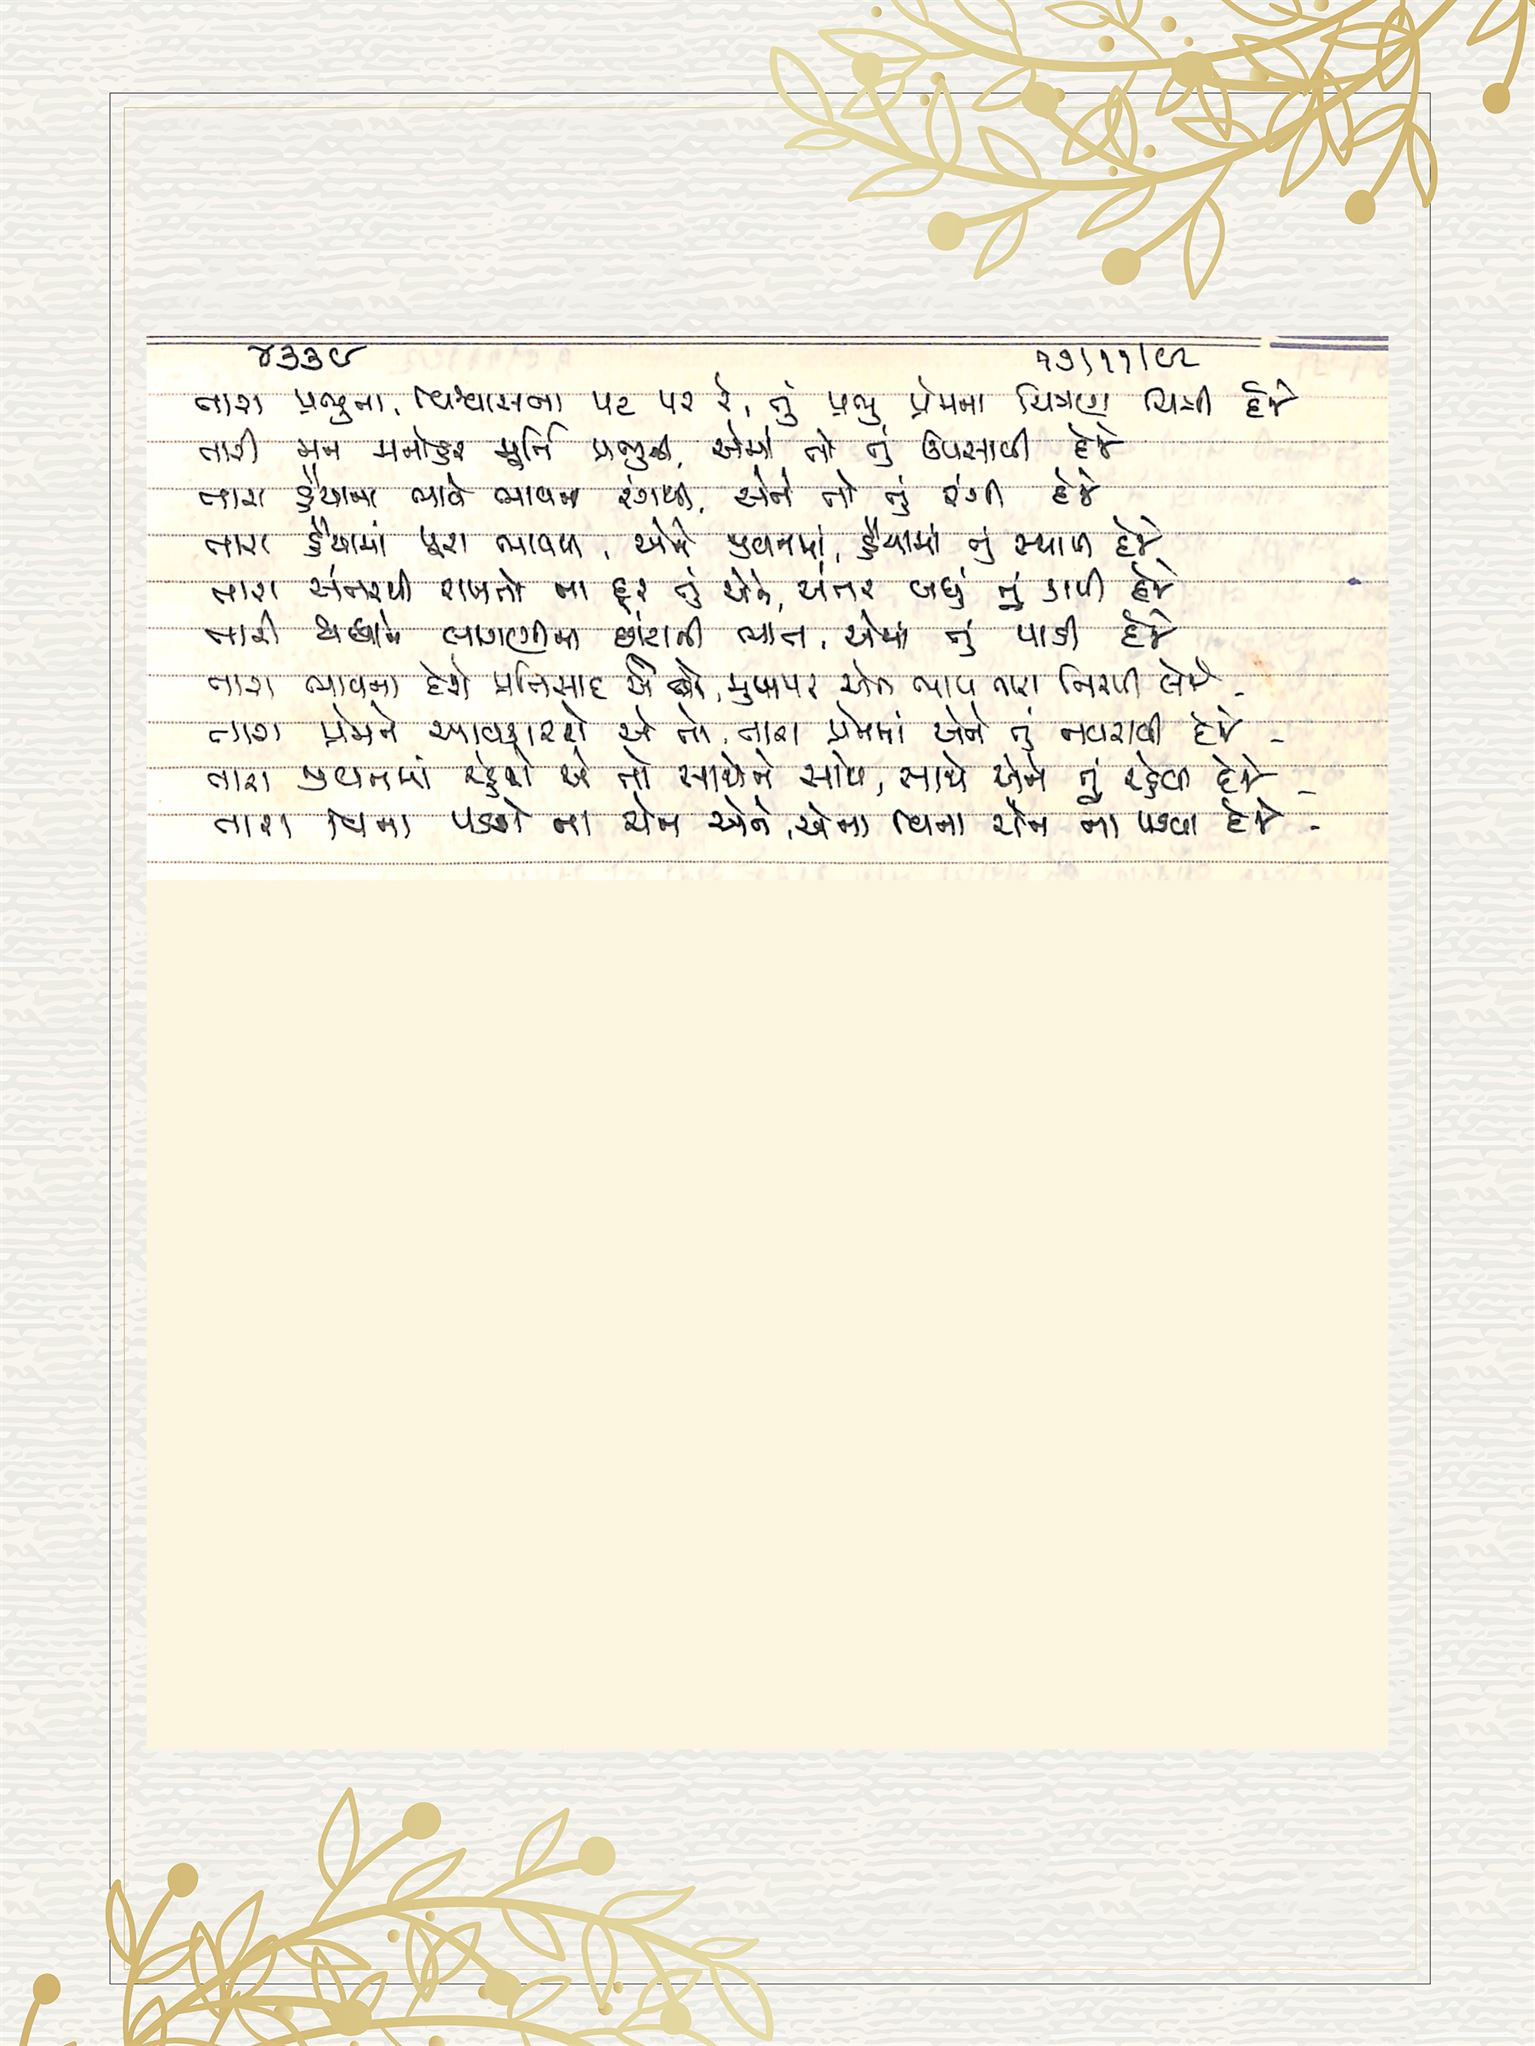 ૪૩૩૯ ૧૭/૧૧/૯૨
તારા પ્રભુના, વિશ્વાસના પટ પર રે, તું પ્રભુ પ્રેમના ચિત્રણ ચિત્રી દેજે
તારી મન મનોહર મૂર્તિ પ્રભુની, એમાં તો તું ઉપસાવી દેજે
તારા હૈયાના ભાવે ભાવના રંગથી, એને તો તું રંગી દેજે
તારા હૈયામાં પૂરા ભાવથી, એને જીવનમાં, હૈયામાં તું સ્થાપી દેજે
તારા અંતરથી રાખતો ના દૂર તું એને, અંતર બધું તું કાપી દેજે
તારી લાગણીના છાંટાની ભાત, એમાં તું પાડી દેજે
તારા ભાવના દેશે પ્રતિસાદ એ તો, મુખપર એના ભાવ તારા નિરખી લેજે -
તારા પ્રેમને આવકારશે એ તો, તારા પ્રેમમાં એને તું નવરાવી દેજે -
તારા જીવનમાં રહેશે એ તો સાથેને સાથે, સાથે એને તું રહેવા દેજે -
તારા વિના પડશે ના ચેન એને, એના વિના ચેન ના પડવા દેજે -